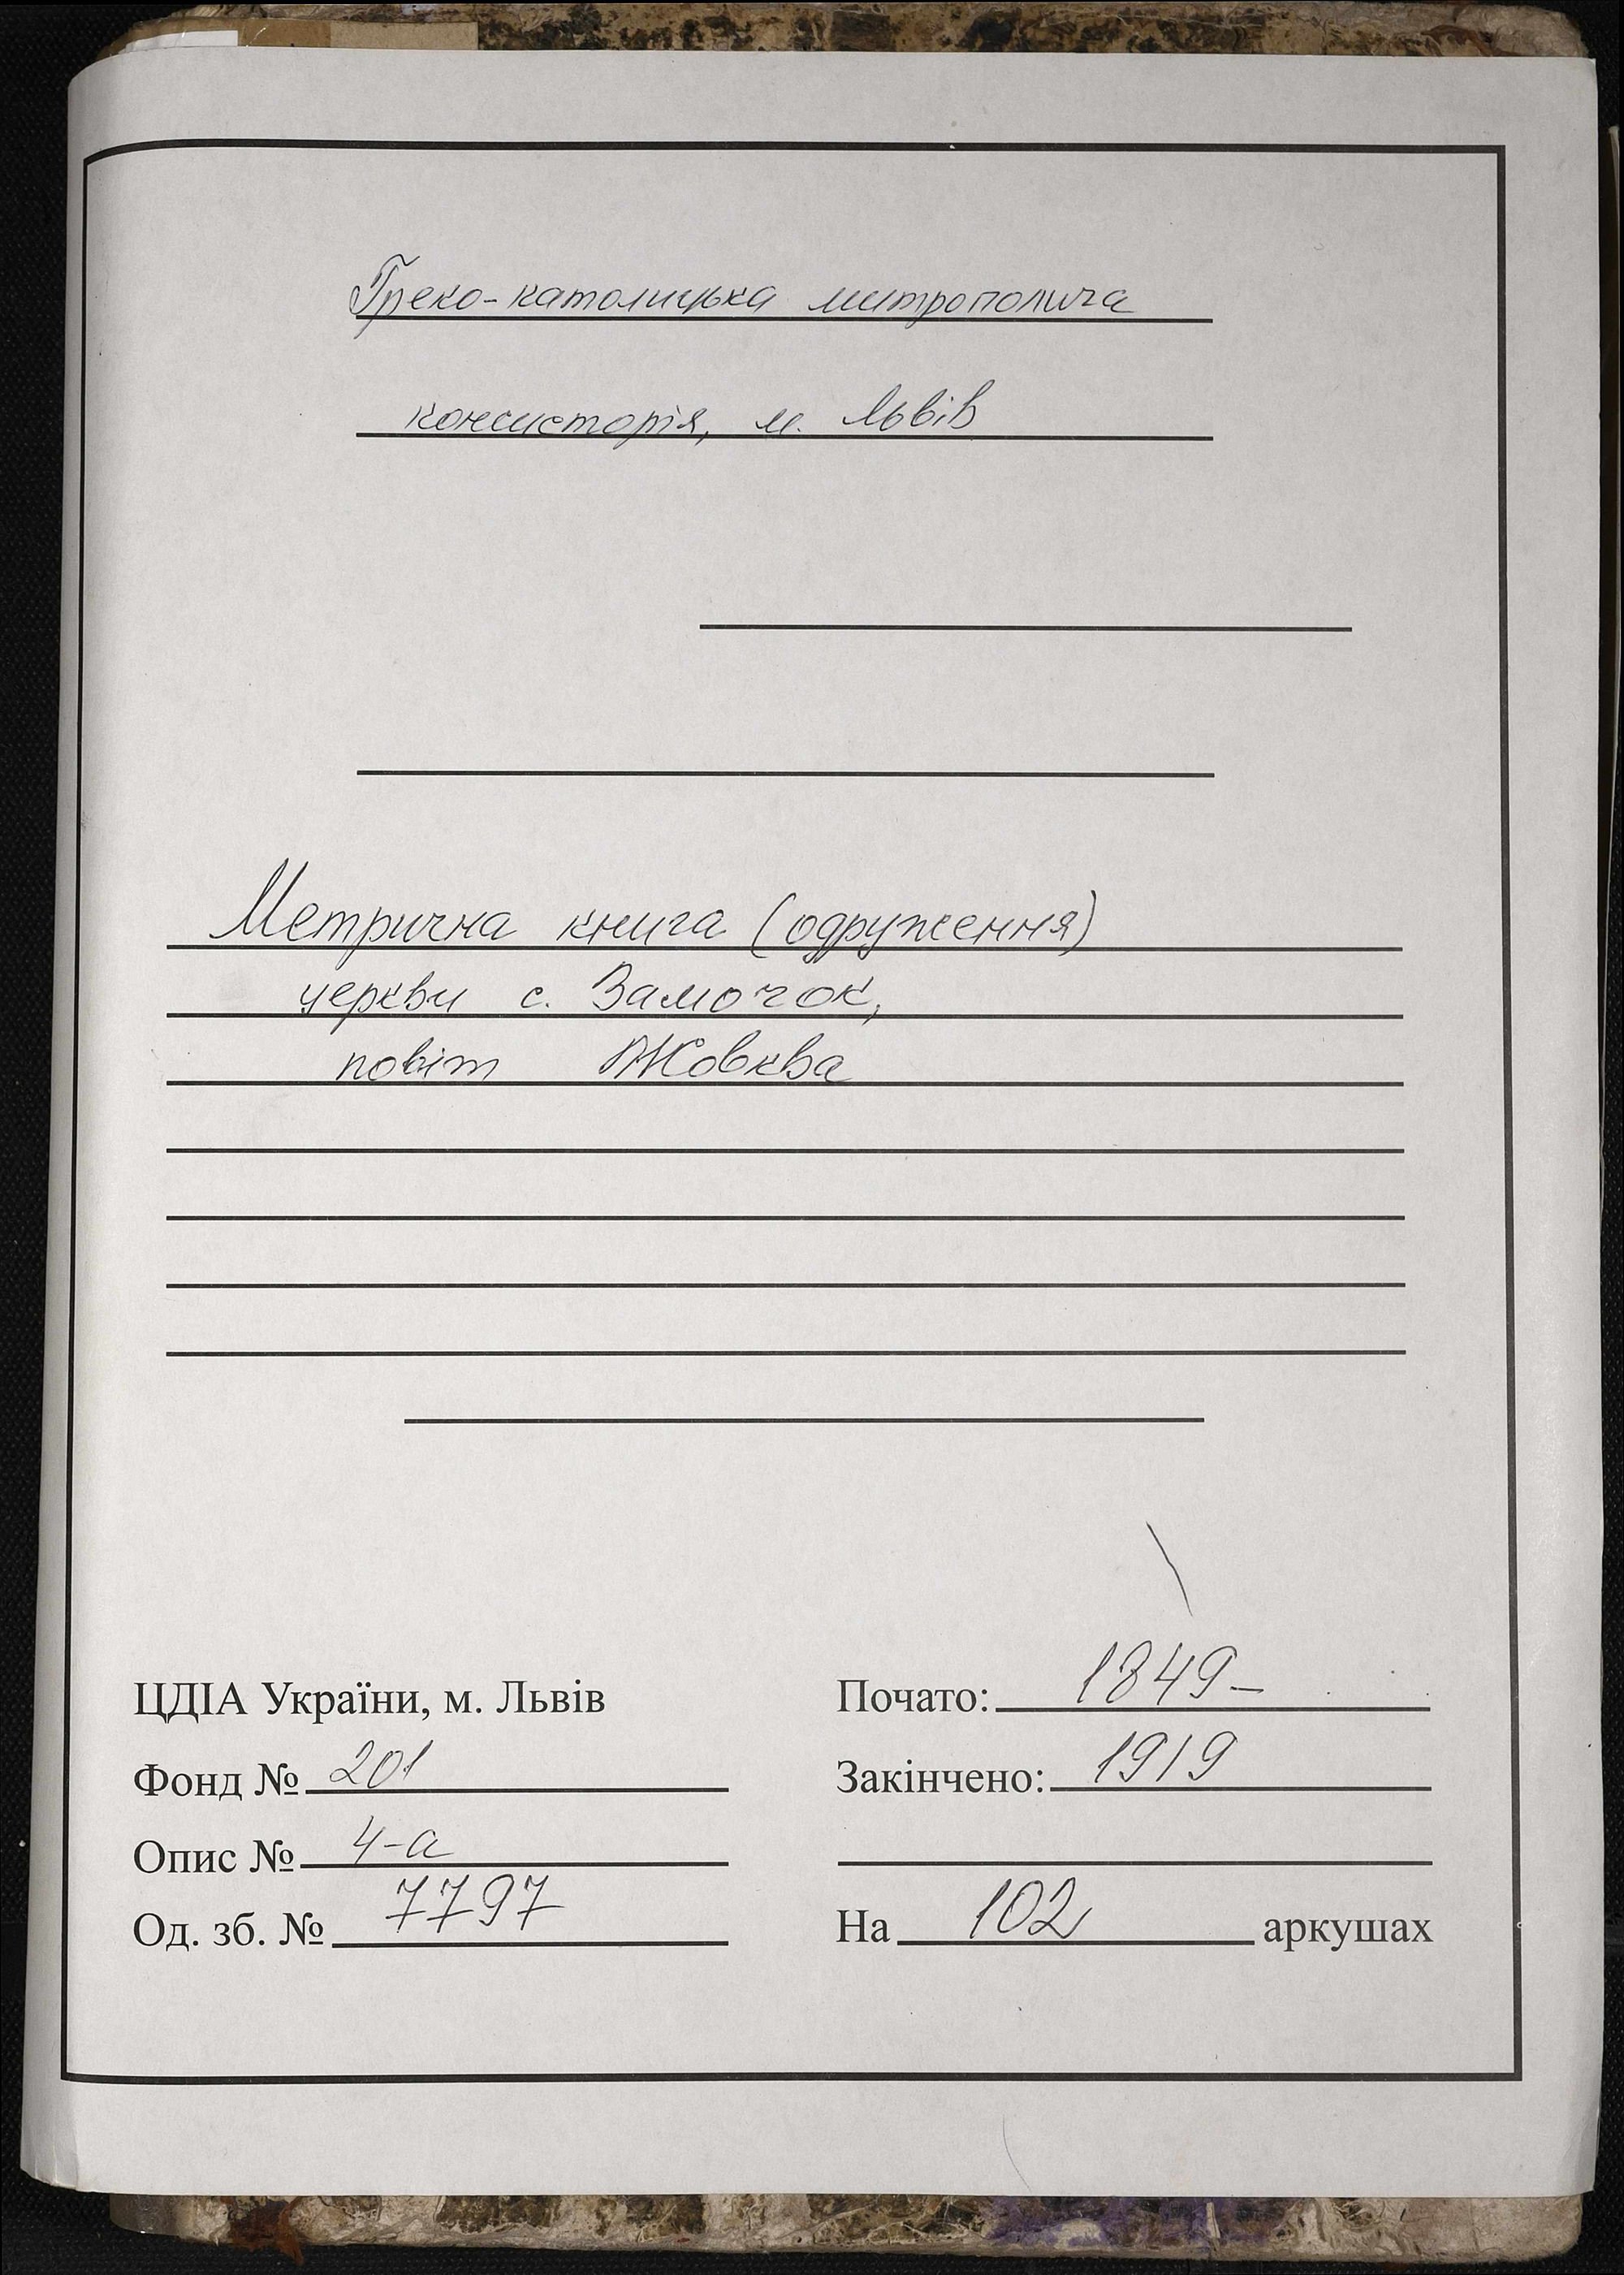 Греко-католицька митрополича
консисторія, м. Львів
Метрична книга (одруження)
церкви с. Замочок,
повіт Жовква
ЦДІА України, м. Львів
Фонд № 201
Опис № 4-а
Од. зб. № 7797
Почато: 1849-
Закінчено: 1919
На 102 аркушах